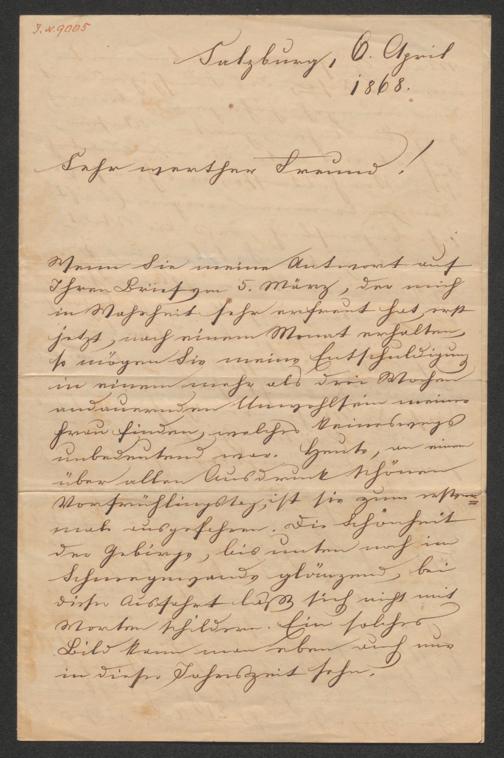 I. N. 9005
Salzburg, 6. April
1868.
Sehr werther Freund!
Wenn Sie meine Antwort auf
Ihren Brief vom 5. März, der mich
in Wahrheit sehr erfreut hat, erst
jetzt, nach einem Monat erhalten,
so mögen Sie meine Entschuldigung
in einem mehr als drei Wochen
andauernden Unwohlsein meiner
Frau finden, welches keineswegs
unbedeutend war. Heute, an einem
über allen Ausdruck schönen
Vorfrühlingstag, ist sie zum ersten=
male ausgefahren. Die Schönheit
der Gebirge, bis unten noch im
Schneegewande glänzend, bei
dieser Ausfahrt läßt sich nicht mit
Worten schildern. Ein solches
Bild kann man eben auch nur
in dieser Jahreszeit sehn.